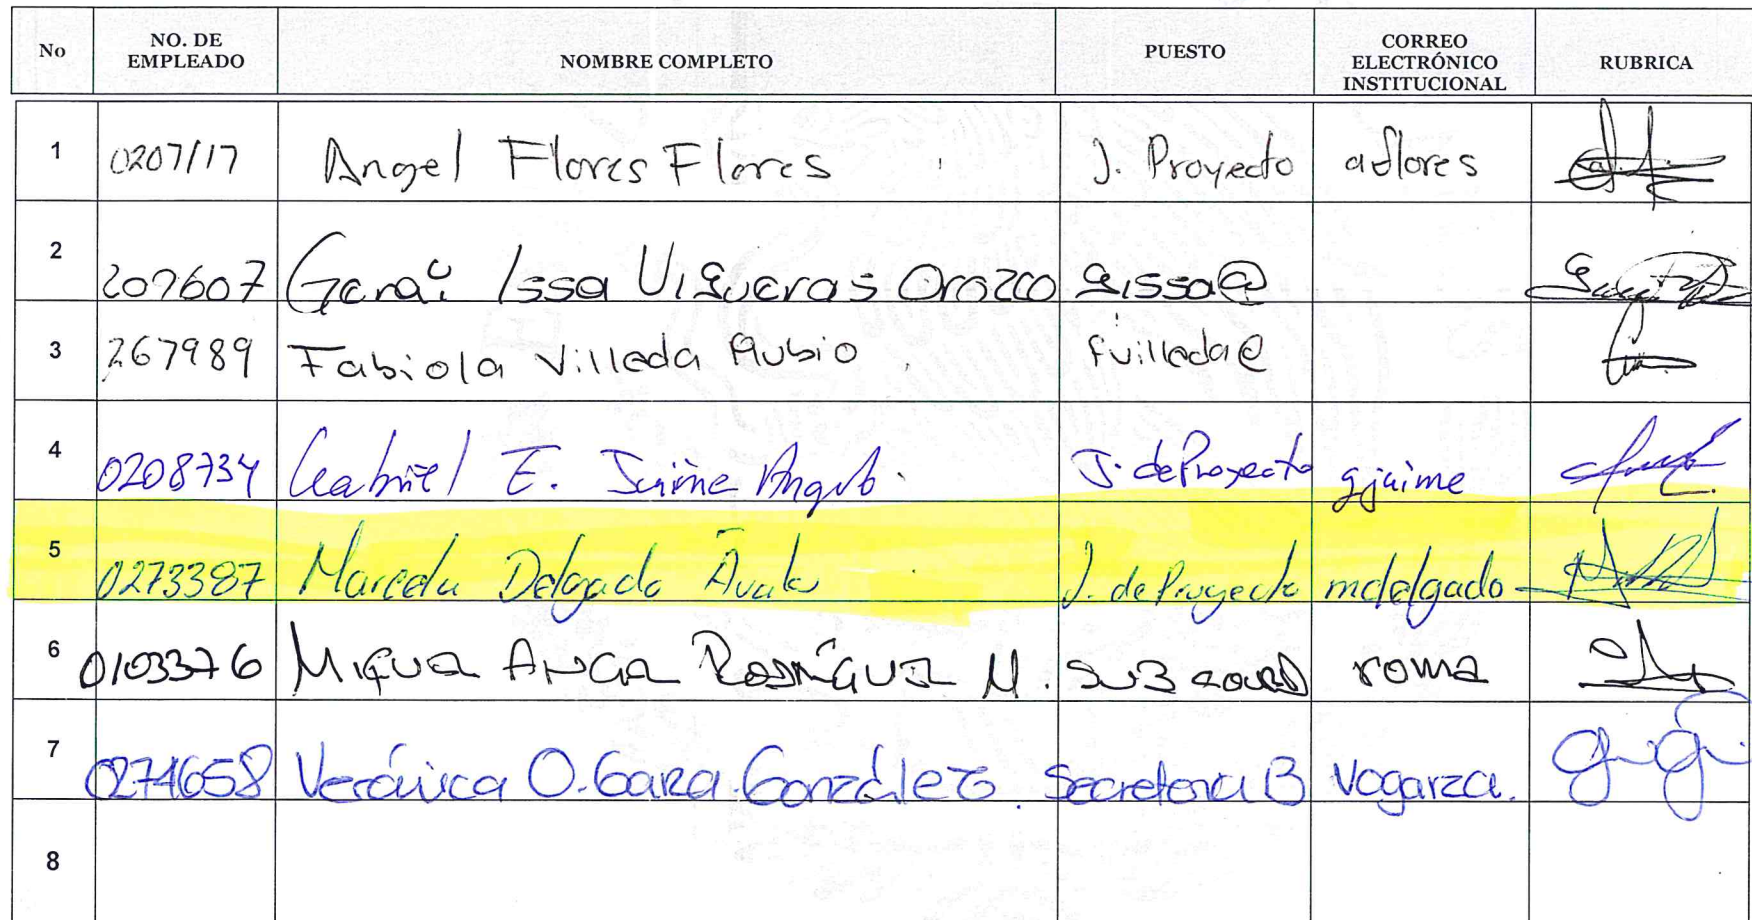 No NO. DE EMPLEADO NOMBRE COMPLETO PUESTO CORREO ELECTRÓNICO INSTITUCIONAL RUBRICA
1 0207117 Angel Flores Flores J. Proyecto aflores
2 209607 Issa Vigueras Orozco gissa@
3 267989 Fabiola Villeda Rubio fvilleda@
4 0208734 Gabriel E. Jaime Angulo. J. de Proyecto gjaime
5 0273387 Marcela Delgado Ávalos J. de Proyecto mdelgado
6 0103376 Miguel Angel Rodríguez M. roma
7 0274658 Verónica O. Garza González. Secretaria B vogarza.
8